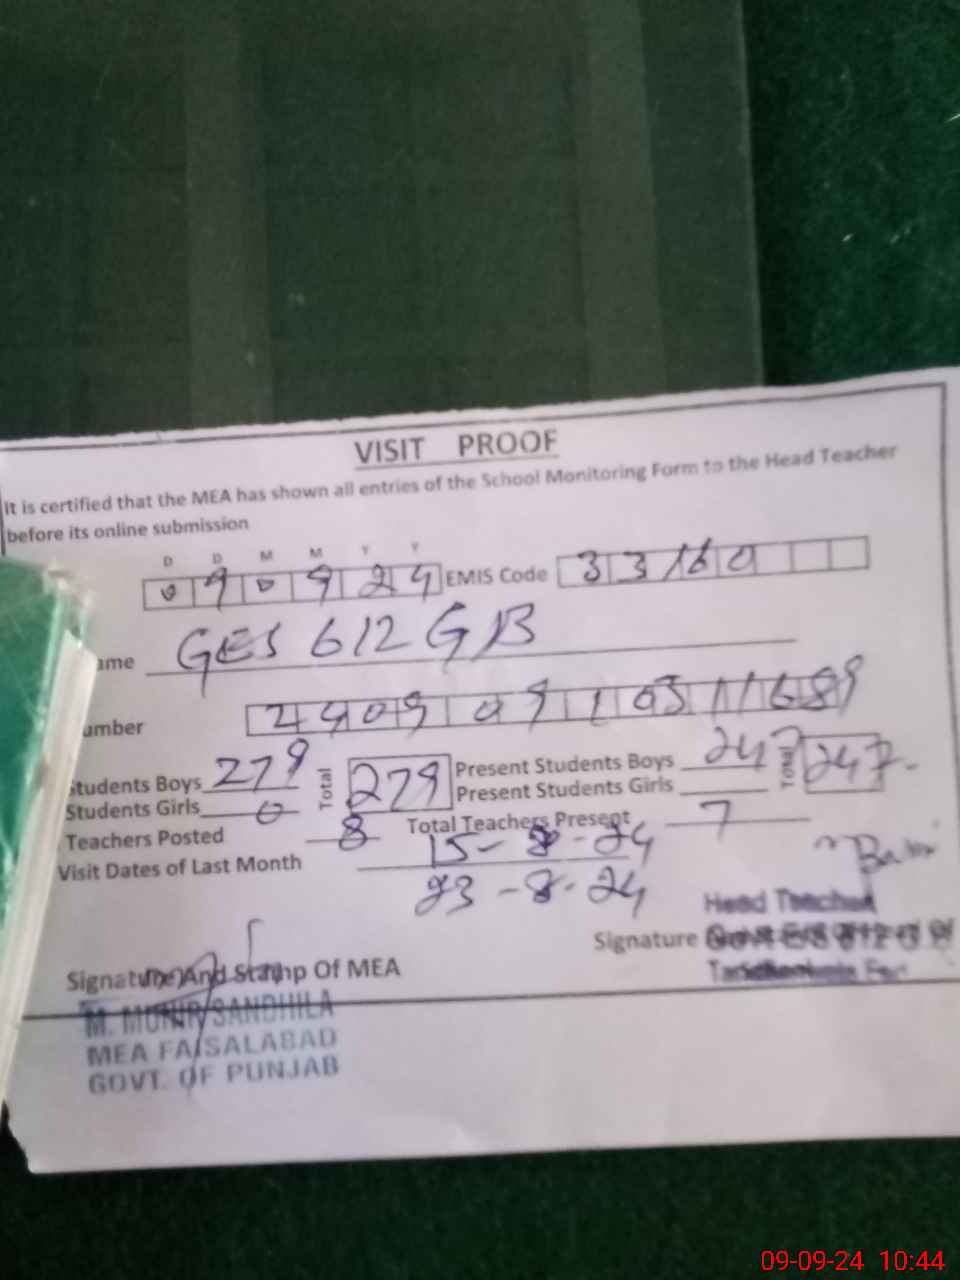 VISIT PROOF
It is certified that the MEA has shown all entries of the School Monitoring Form to the Head Teacher
before its online submission
D D M M Y Y
0 9 0 9 2 4 EMIS Code 3 3 1 6 0
ame GES 612 GB
umber
Students Boys 279 Total 279 Present Students Boys 247 Total 247
Students Girls 0 Present Students Girls
Teachers Posted 8 Total Teachers Present 7
Visit Dates of Last Month 15-8-24
23-8-24
Head Teacher
Signature
Signature And Stamp Of MEA
M. MUNIR SANDHILA
MEA FAISALABAD
GOVT. OF PUNJAB
09-09-24 10:44